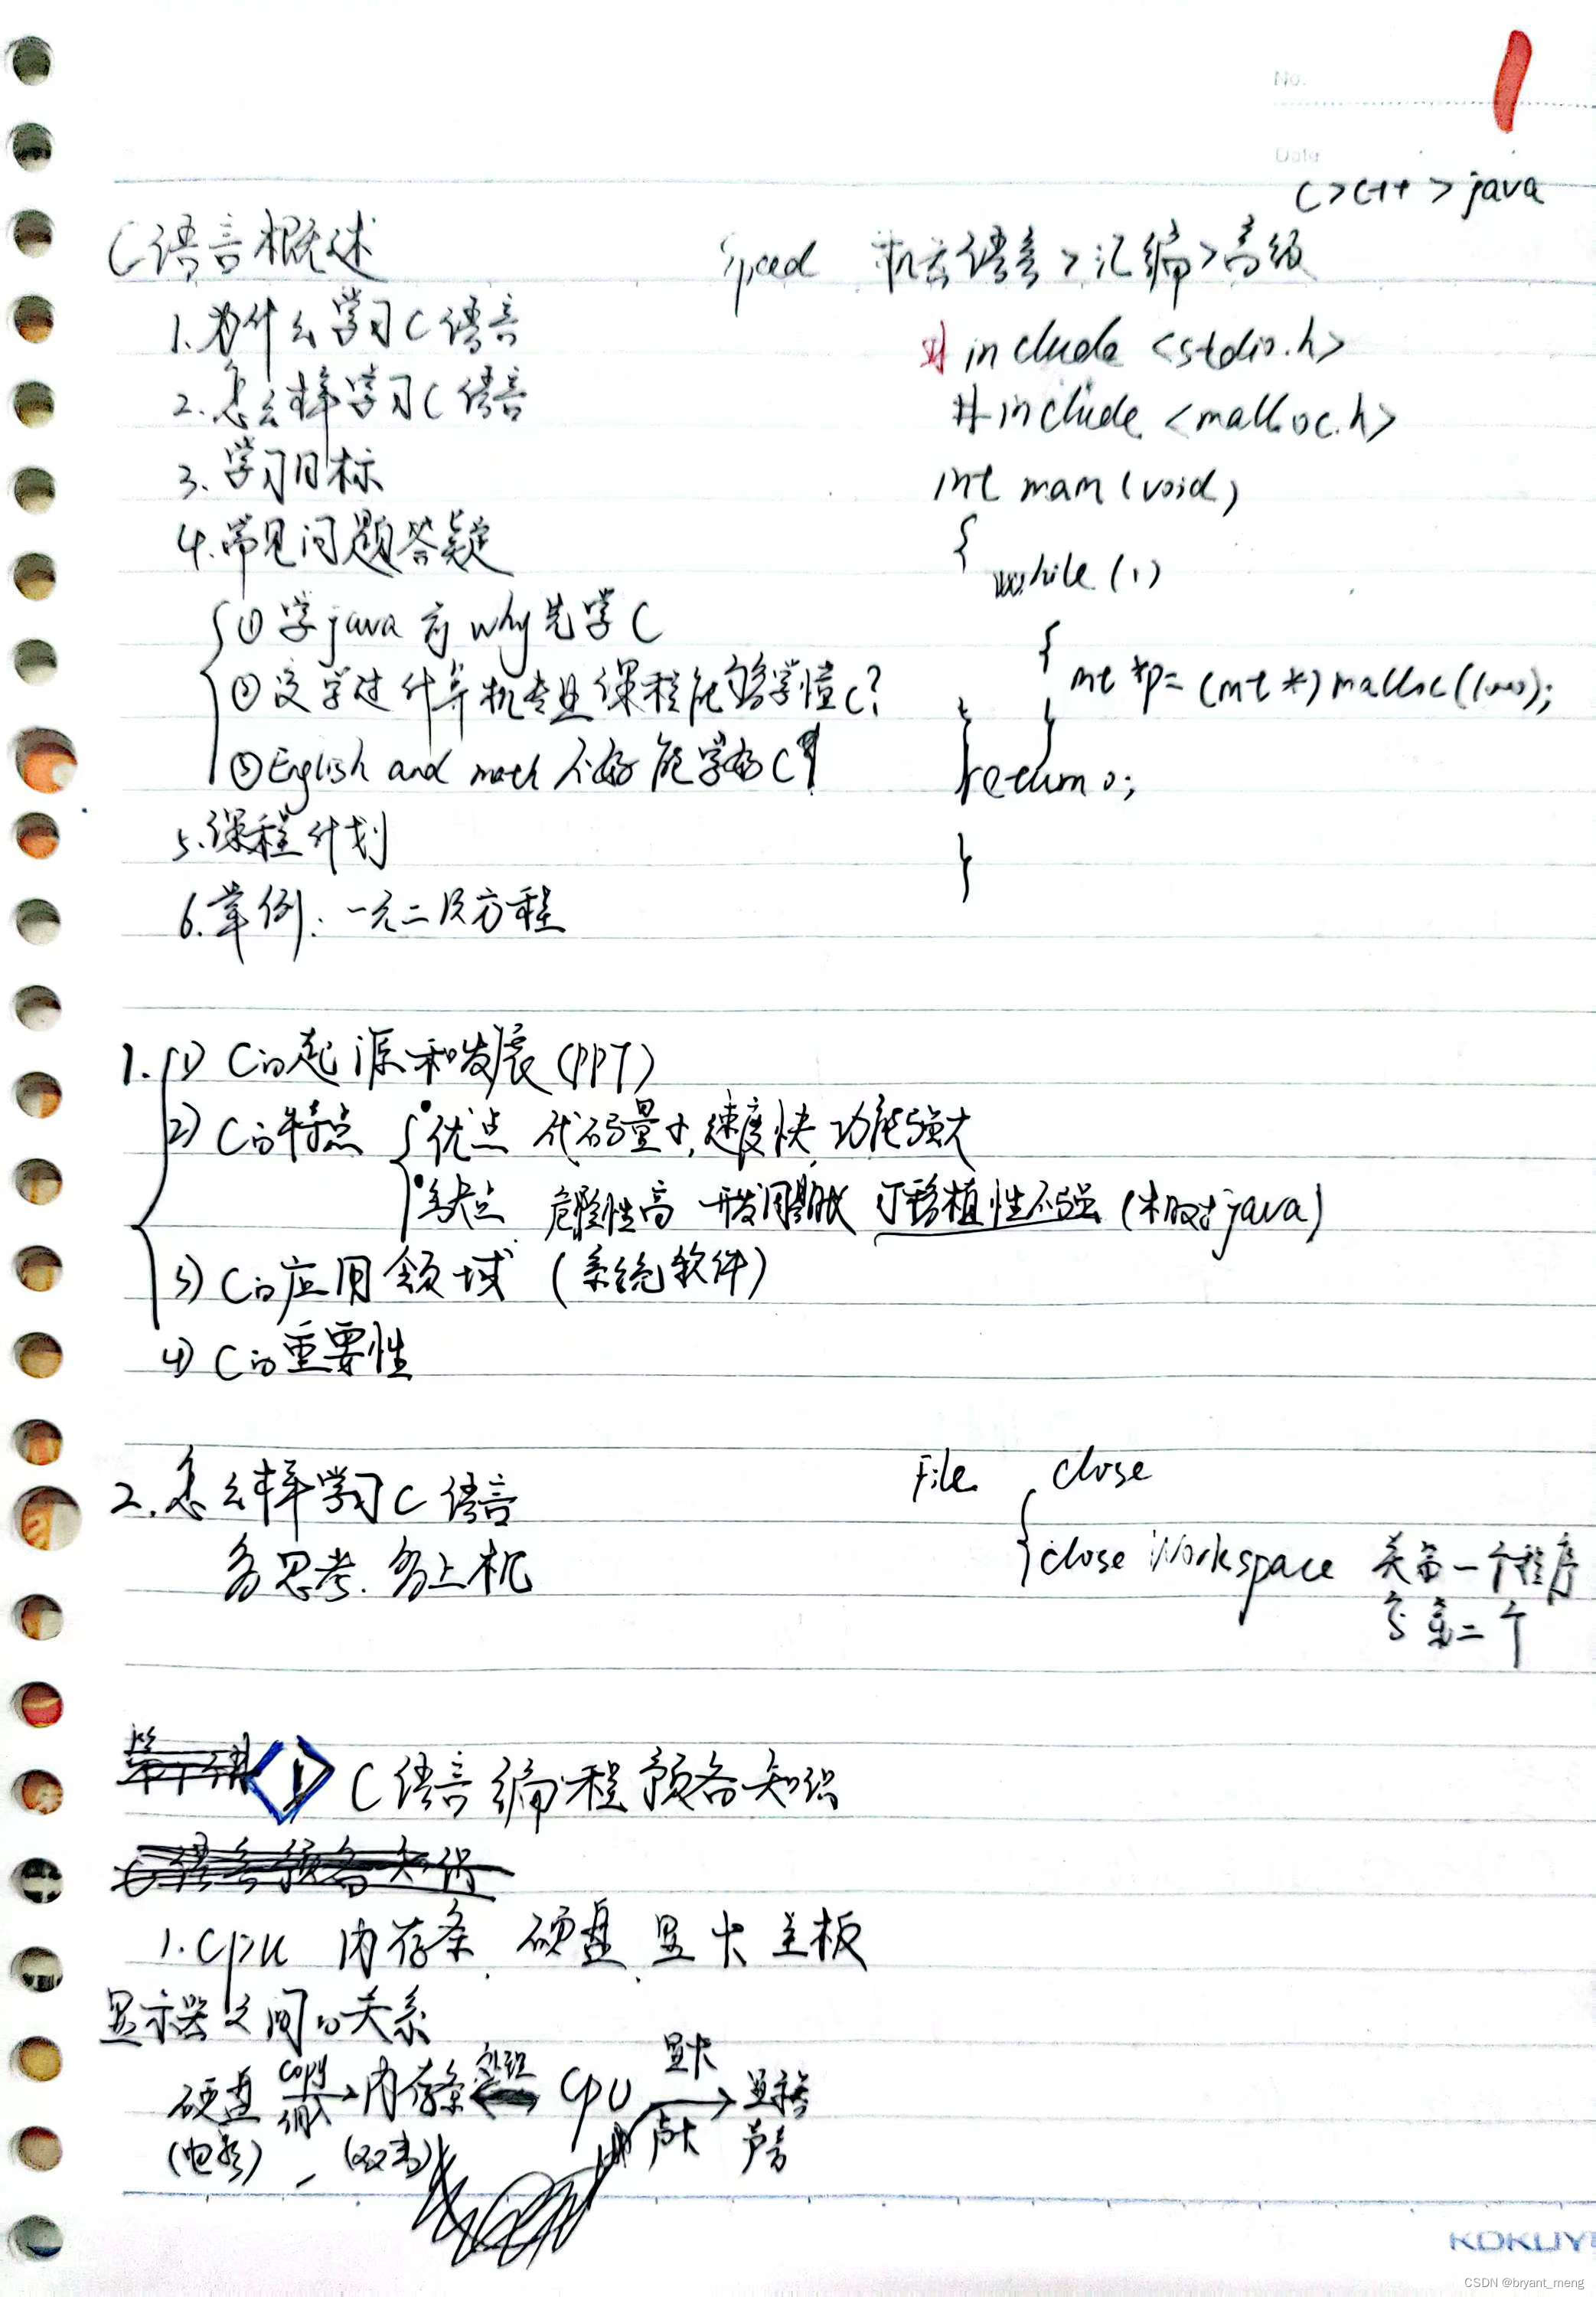 No.
1
Date
C > C++ > java
C语言概述
Speed 机器语言 > 汇编 > 高级
1. 为什么学习C语言
# include <stdio.h>
2. 怎么样学习C语言
# include <malloc.h>
3. 学习目标
int main (void)
4. 常见问题答疑
{
while (1)
① 学java前why先学C
{
② 没学过计算机专业课程能够学懂C?
int *p = (int *) malloc (1000);
}
③ English and math 不好能学好C?
return 0;
5. 课程计划
}
6. 举例: 一元二次方程
1. 1) C的起源和发展 (PPT)
2) C的特点
优点 代码量小, 速度快, 功能强大
缺点 危险性高 开发周期长 可移植性不强 (相对java)
3) C的应用领域 (系统软件)
4) C的重要性
2. 怎么样学习C语言
File close
多思考. 多上机
close Workspace 关第一个程序
写第二个
1 C语言编程预备知识
1. CPU 内存条. 硬盘. 显卡 主板
显示器之间的关系
硬盘 copy → 内存条 处理 CPU 显卡 → 显示器
(电影) (双击) 声卡 声音
KOKUY
CSDN @bryant_meng